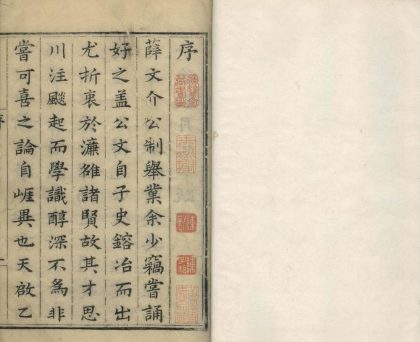 序
薛文介公制舉業余少竊嘗誦
好之盖公文自子史鎔冶而出
尤折衷於濂雒諸賢故其才思
川注飈起而學識醇深不為非
嘗可喜之論自崕異也天啟乙